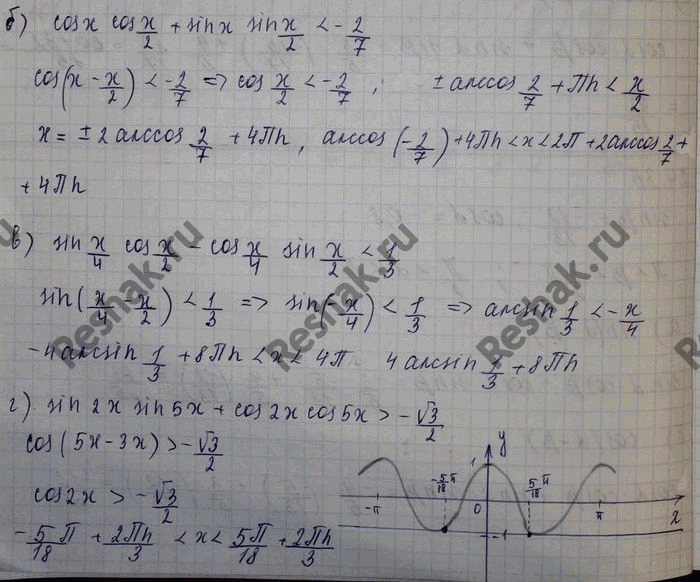 б) cosx cos x/2 + sinx sin x/2 < -2/7
cos(x - x/2) < -2/7 => cos x/2 < -2/7 ; ± arccos 2/7 + πn < x/2
x = ± 2 arccos 2/7 + 4πn , arccos(-2/7) + 4πn < x < 2π + 2 arccos 2/7 +
+ 4πn
в) sin x/4 cos x/2 - cos x/4 sin x/2 < 1/3
sin(x/4 - x/2) < 1/3 => sin(-x/4) < 1/3 => arcsin 1/3 < -x/4
-4 arcsin 1/3 + 8πn < x < 4π 4 arcsin 1/3 + 8πn
г) sin 2x sin 5x + cos 2x cos 5x > -√3/2
cos(5x - 3x) > -√3/2
cos 2x > -√3/2
-5π/18 + 2πn/3 < x < 5π/18 + 2πn/3
y
1
-5/18 π
5/18 π
-π
0
π
x
-1
Reshak.ru
Reshak.ru
Reshak.ru
Reshak.ru